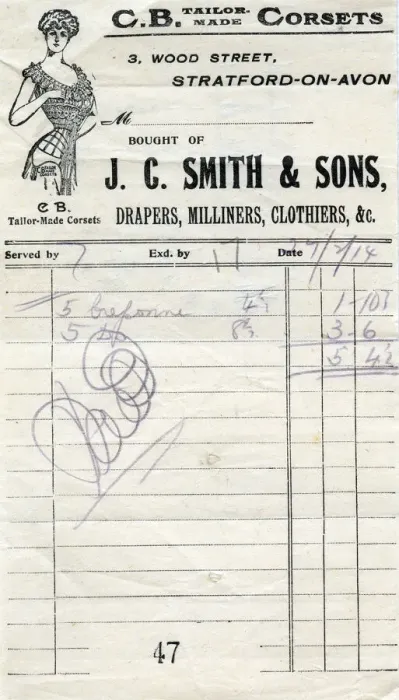 C.B. TAILOR-MADE CORSETS
3, WOOD STREET,
STRATFORD-ON-AVON
M
BOUGHT OF
J. C. SMITH & SONS,
DRAPERS, MILLINERS, CLOTHIERS, &c.
C B.
Tailor-Made Corsets
Served by 7 Exd. by 17 Date
5 creponne 4½ 1 10½
5 do 3 6
5 4½
47